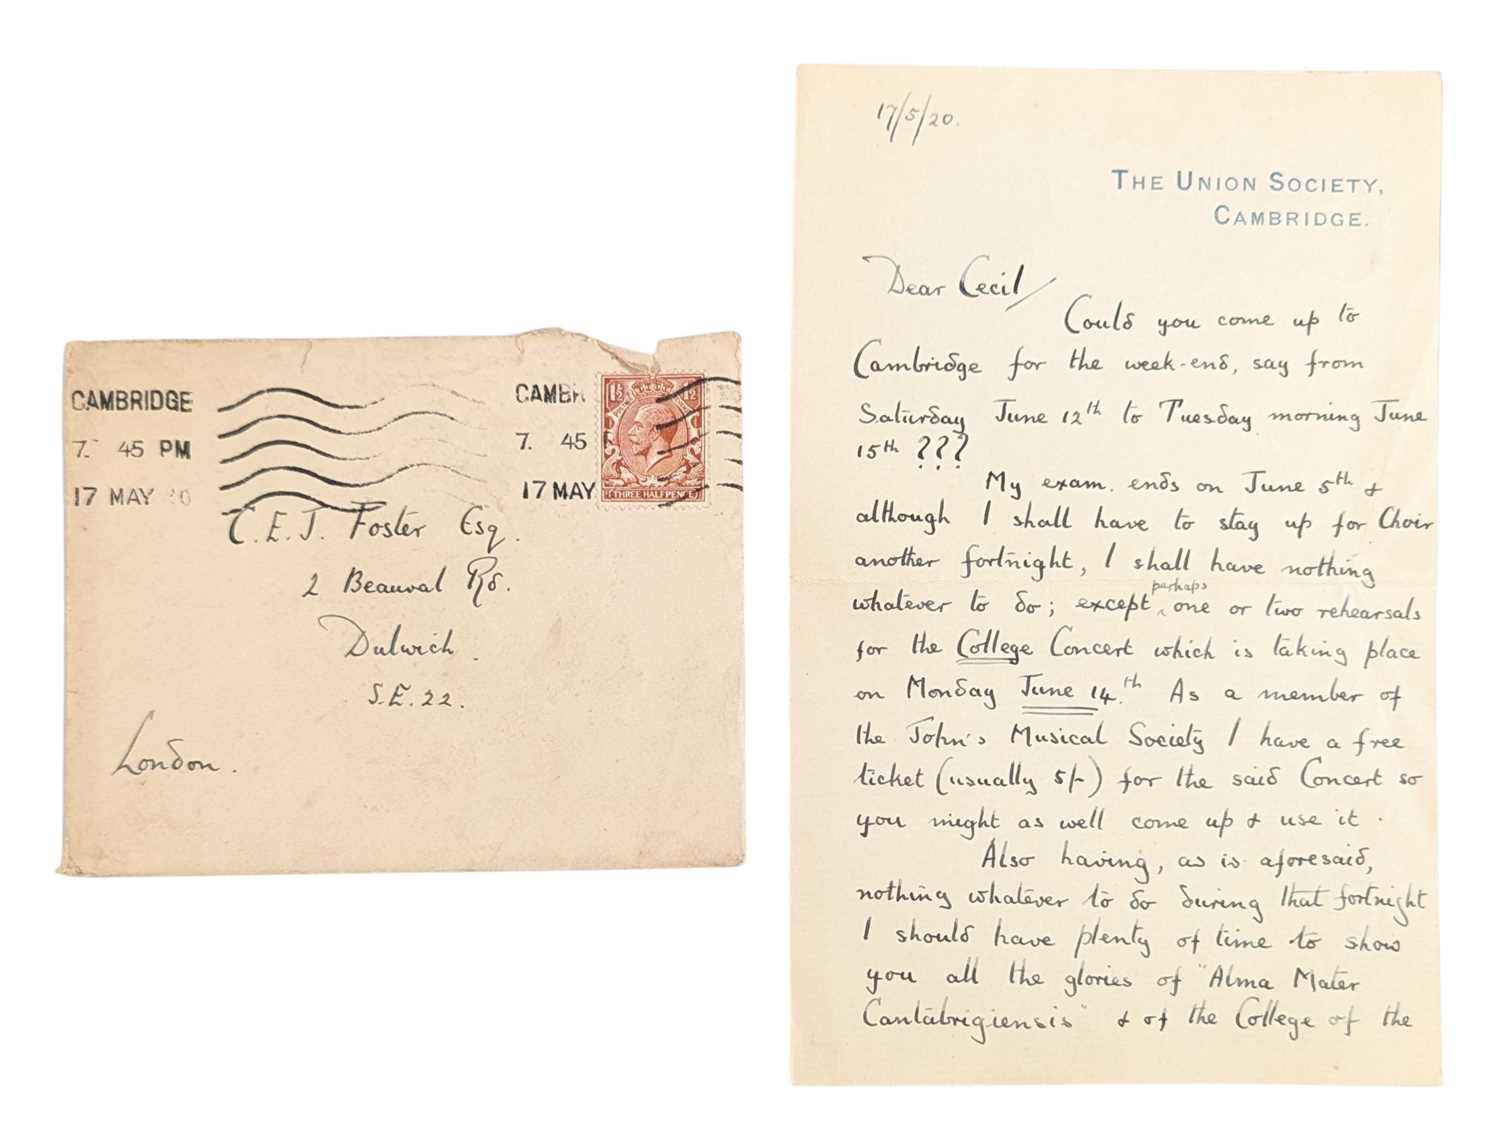 CAMBRIDGE
7. 45 PM
17 MAY
CAMBR
7. 45 P
17 MAY
1½ 1½
THREE HALFPENCE
C. E. J. Foster Esq.
2 Beauval Rd.
Dulwich.
S.E. 22.
London.
17/5/20.
THE UNION SOCIETY,
CAMBRIDGE.
Dear Cecil/
Could you come up to
Cambridge for the week-end, say from
Saturday June 12th to Tuesday morning June
15th ???
My exam. ends on June 5th &
although I shall have to stay up for Choir
another fortnight, I shall have nothing
whatever to do; except perhaps one or two rehearsals
for the College Concert which is taking place
on Monday June 14th. As a member of
the John's Musical Society I have a free
ticket (usually 5/-) for the said Concert so
you might as well come up & use it.
Also having, as is aforesaid,
nothing whatever to do during that fortnight
I should have plenty of time to show
you all the glories of "Alma Mater
Cantabrigiensis" & of the College of the